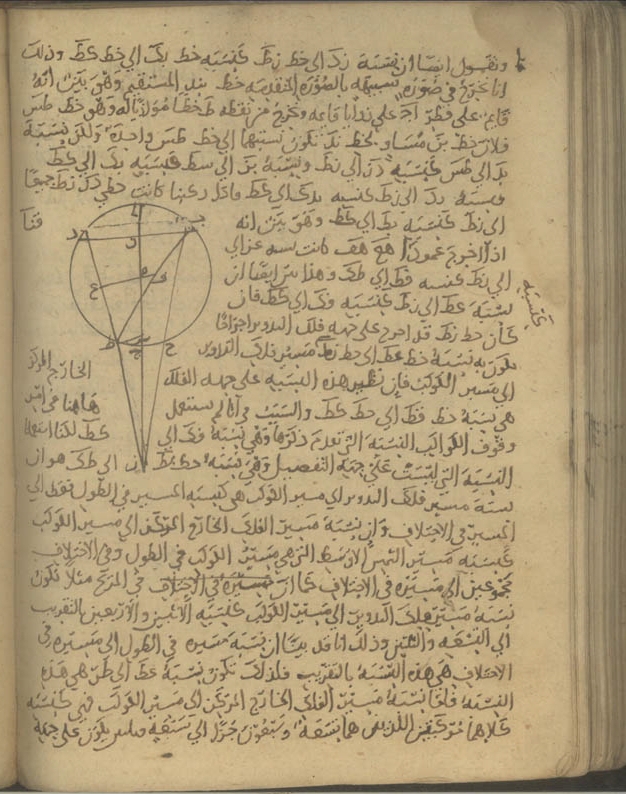 ونقول ايضا ان نسبة زد الى خط زط كنسبة خط بك الى خط كط وذلك
انا نخرج في صورة شبيهة بالصورة المتقدمة خط بند المستقيم وهو بين انه
قائم على قطر اج على زوايا قائمة ونخرج من نقطة ط خطا موازيا له وهو خط طس
فلان خط بن مساو لخط ند تكون نسبتهما الى خط طس واحدة ولكن نسبة
ند الى طس كنسبة دز الى زط ونسبة بن الى سط كنسبة بك الى كط
ونسبة دز الى زط كنسبة بك الى كط واذا ركبنا كانت خطي دز زط جميعا
الى زط كنسبة بط الى كط وهو بين انه
اذا اخرج عمودا هع هف كانت نسبة
الى زط كنسبة فط الى طك وهذا بين ايضا ان
نسبة عط الى زط كنسبة فك الى كط فان
كنسبة
كان خط زط قد اخرج على جهة فلك التدوير
تكون به نسبة خط عط الى خط زط مسير فلك التدوير
الى مسير الكوكب فان نظير هذه النسبة على جهة الفلك الخارج المركز
هي نسبة خط فط الى خط كط والسبب في انا لم نستعمل هاهنا في امر
وقوف الكواكب النسبة التي تقدم ذكرها وهي نسبة فك الى كط لكنا استعملنا
النسبة التي ليست على جهة التفصيل وهي نسبة خط فط الى طك هو ان
نسبة مسير فلك التدوير الى مسير الكوكب هي كنسبة المسير في الطول فقط الى
المسير في الاختلاف وان نسبة مسير الفلك الخارج المركز الى مسير الكوكب
كنسبة مسير الشمس الاوسط الذي هو مسير الكوكب في الطول وفي الاختلاف
مجموعين الى مسيره في الاختلاف كما ان مسيره في الاختلاف في المريخ مثلا تكون
نسبة مسير فلك التدوير الى مسير الكوكب كنسبة الاثنين والاربعين بالتقريب
الى السبعة والثلثين وذلك انا قد بينا ان نسبة مسيره في الطول الى مسيره في
الاختلاف هي هذه النسبة بالتقريب فلذلك تكون نسبة عط الى طز هي هذه
النسبة فاما نسبة مسير الفلك الخارج المركز الى مسير الكوكب فهي كنسبة
كلاهما مركبين اللذين هما تسعة وسبعون جزءا الى سبعة وثلثين يكون على جهة